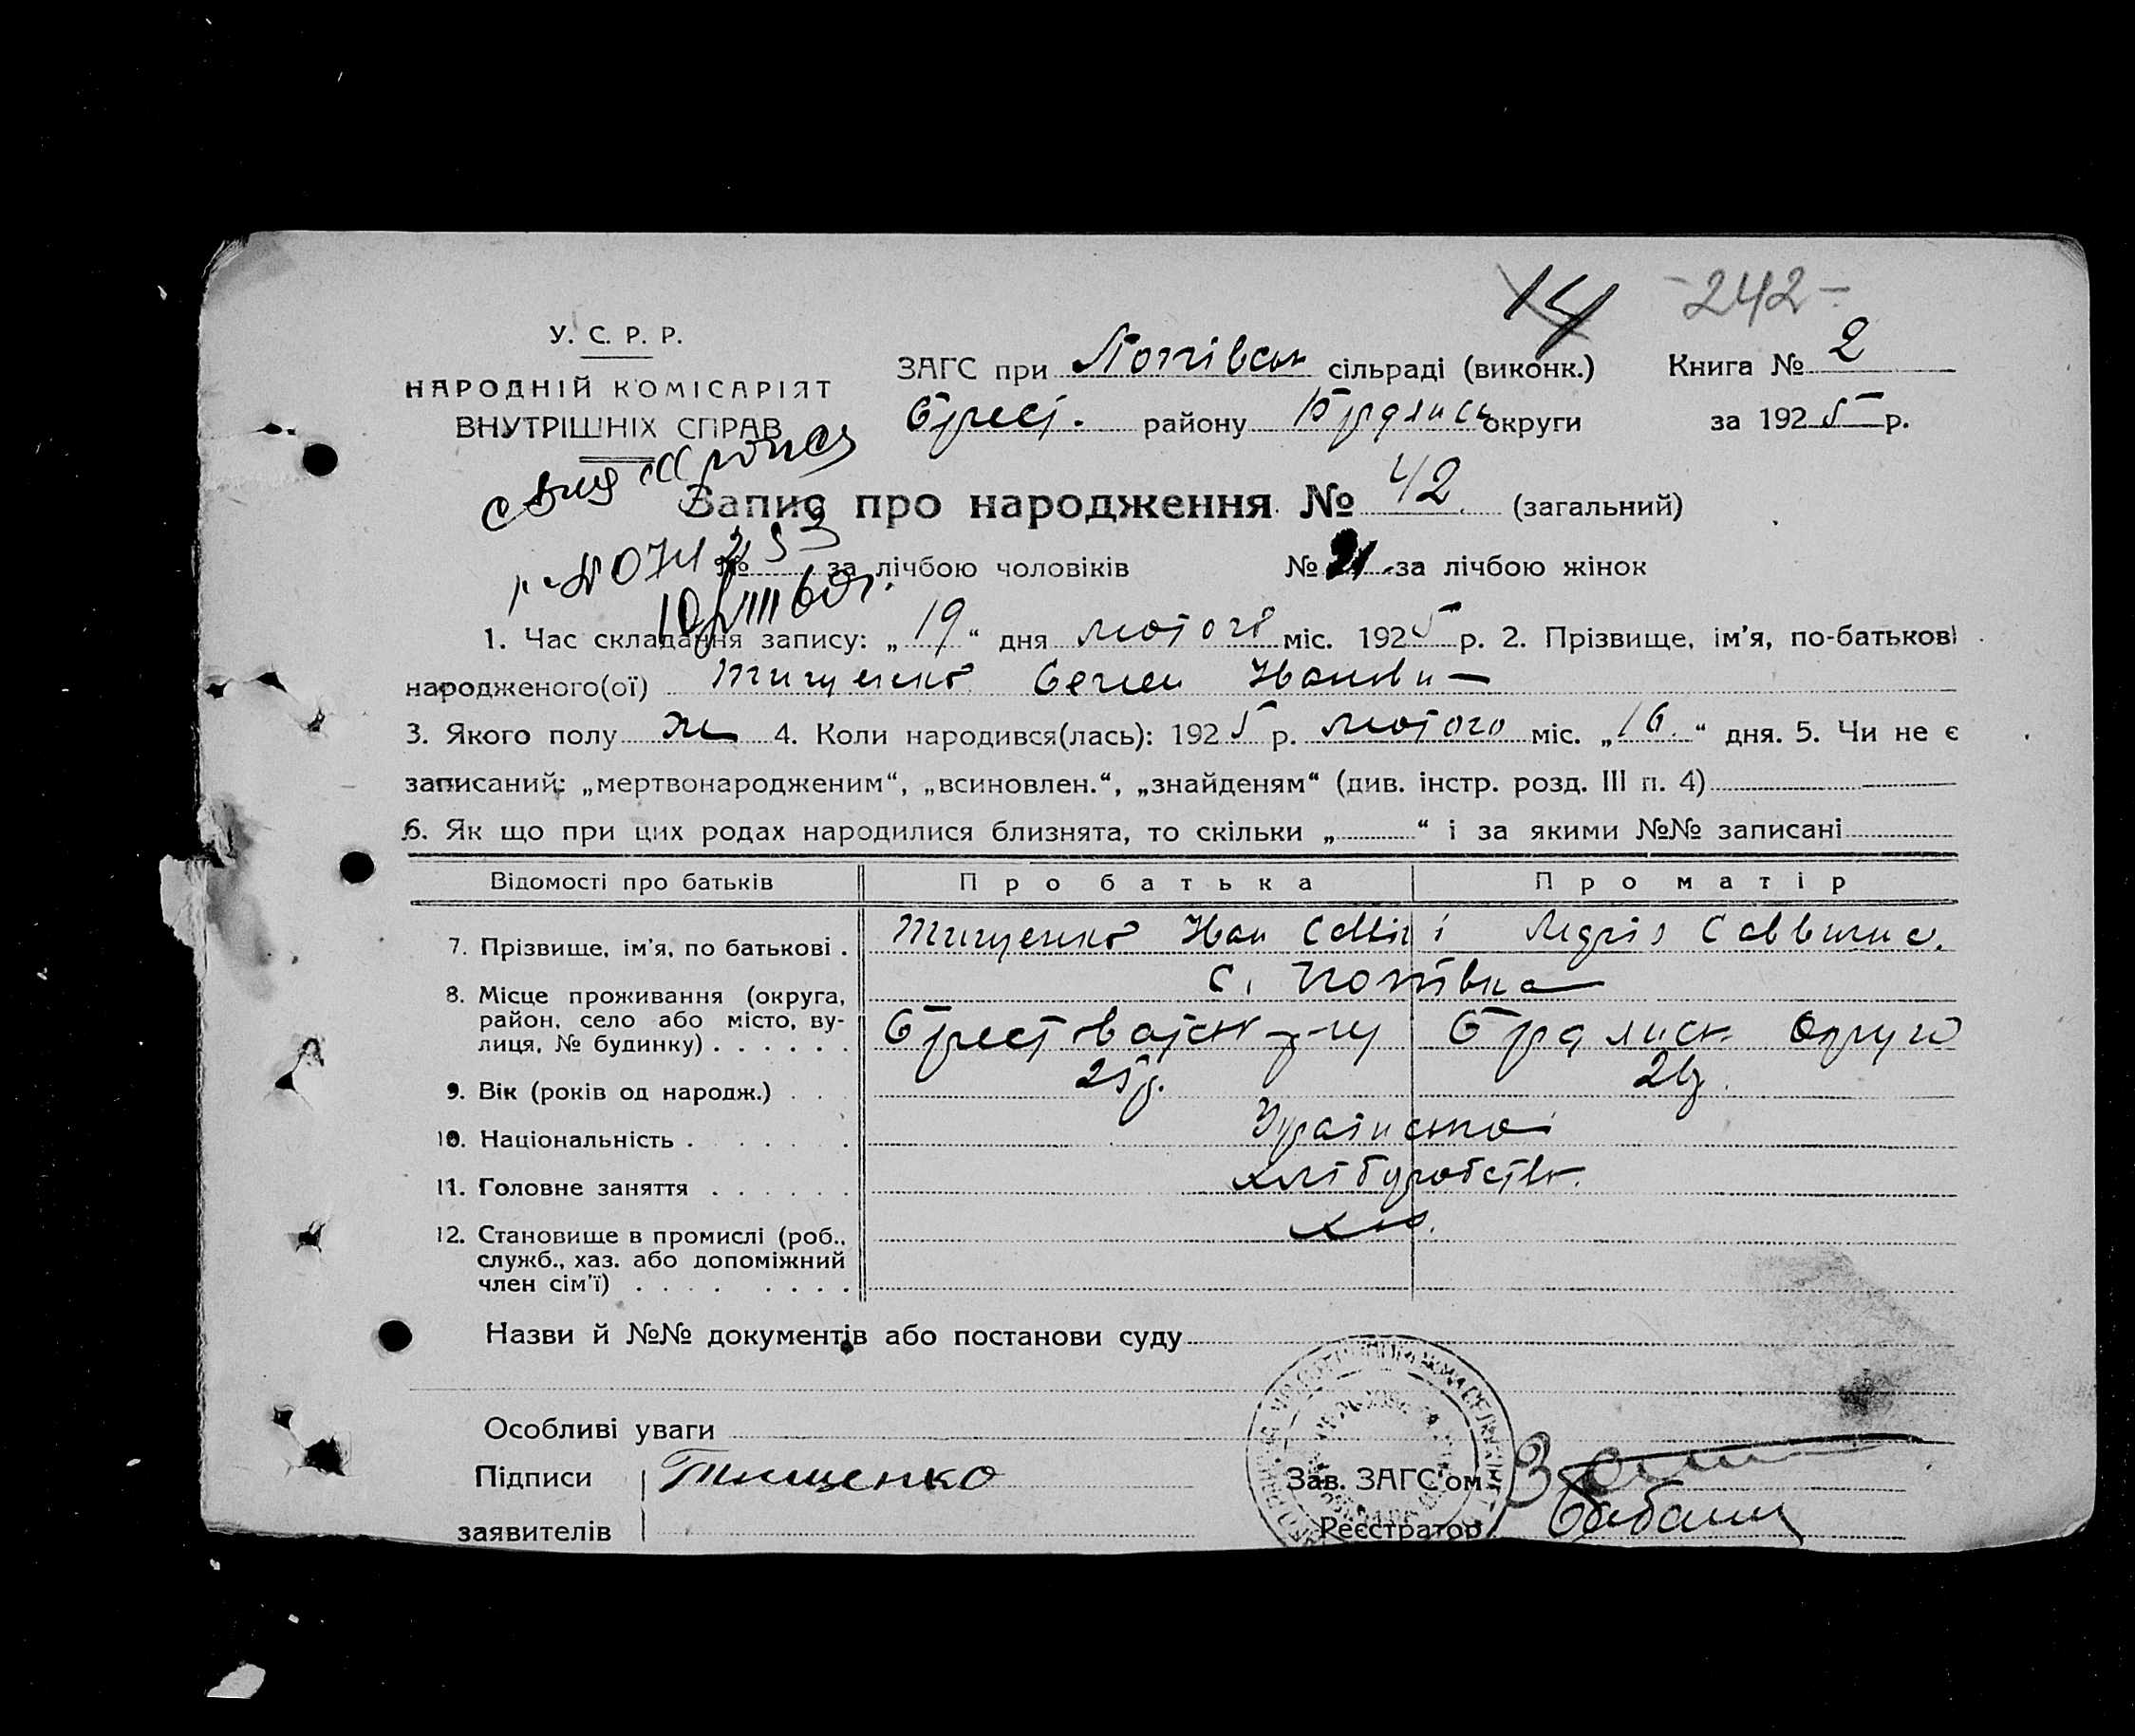 14 -242-
У. С. Р. Р.
НАРОДНІЙ КОМІСАРІЯТ
ВНУТРІШНІХ СПРАВ
ЗАГС при Попівськ сільраді (виконк.) Книга № 2
району округи за 1925 р.
Запис про народження № 42 (загальний)
№ за лічбою чоловіків № 21 за лічбою жінок
1. Час складання запису: „19“ дня лютого міс. 1925 р. 2. Прізвище, ім'я, по-батькові
народженого(ої) Тищенко
3. Якого полу ж 4. Коли народився(лась): 1925 р. лютого міс. „16.“ дня. 5. Чи не є
записаний: „мертвонародженим“, „всиновлен.“, „знайденям“ (див. інстр. розд. III п. 4)
6. Як що при цих родах народилися близнята, то скільки „ “ і за якими №№ записані
Відомості про батьків Про батька Про матір
7. Прізвище, ім'я, по батькові . Тищенко Иван Саввич і Саввична.
с. Попівка
8. Місце проживання (округа,
район, село або місто, ву-
лиця, № будинку) . . . . . .
9. Вік (років од народж.) . . . 25р.
10. Національність . . . . . . Українська
11. Головне заняття . . . . . . хліборобств.
12. Становище в промислі (роб.,
служб., хаз. або допоміжний
член сім'ї) . . . . . . . .
Назви й №№ документів або постанови суду
Особливі уваги
Підписи Тищенко Зав. ЗАГС'ом
заявителів Реєстратор